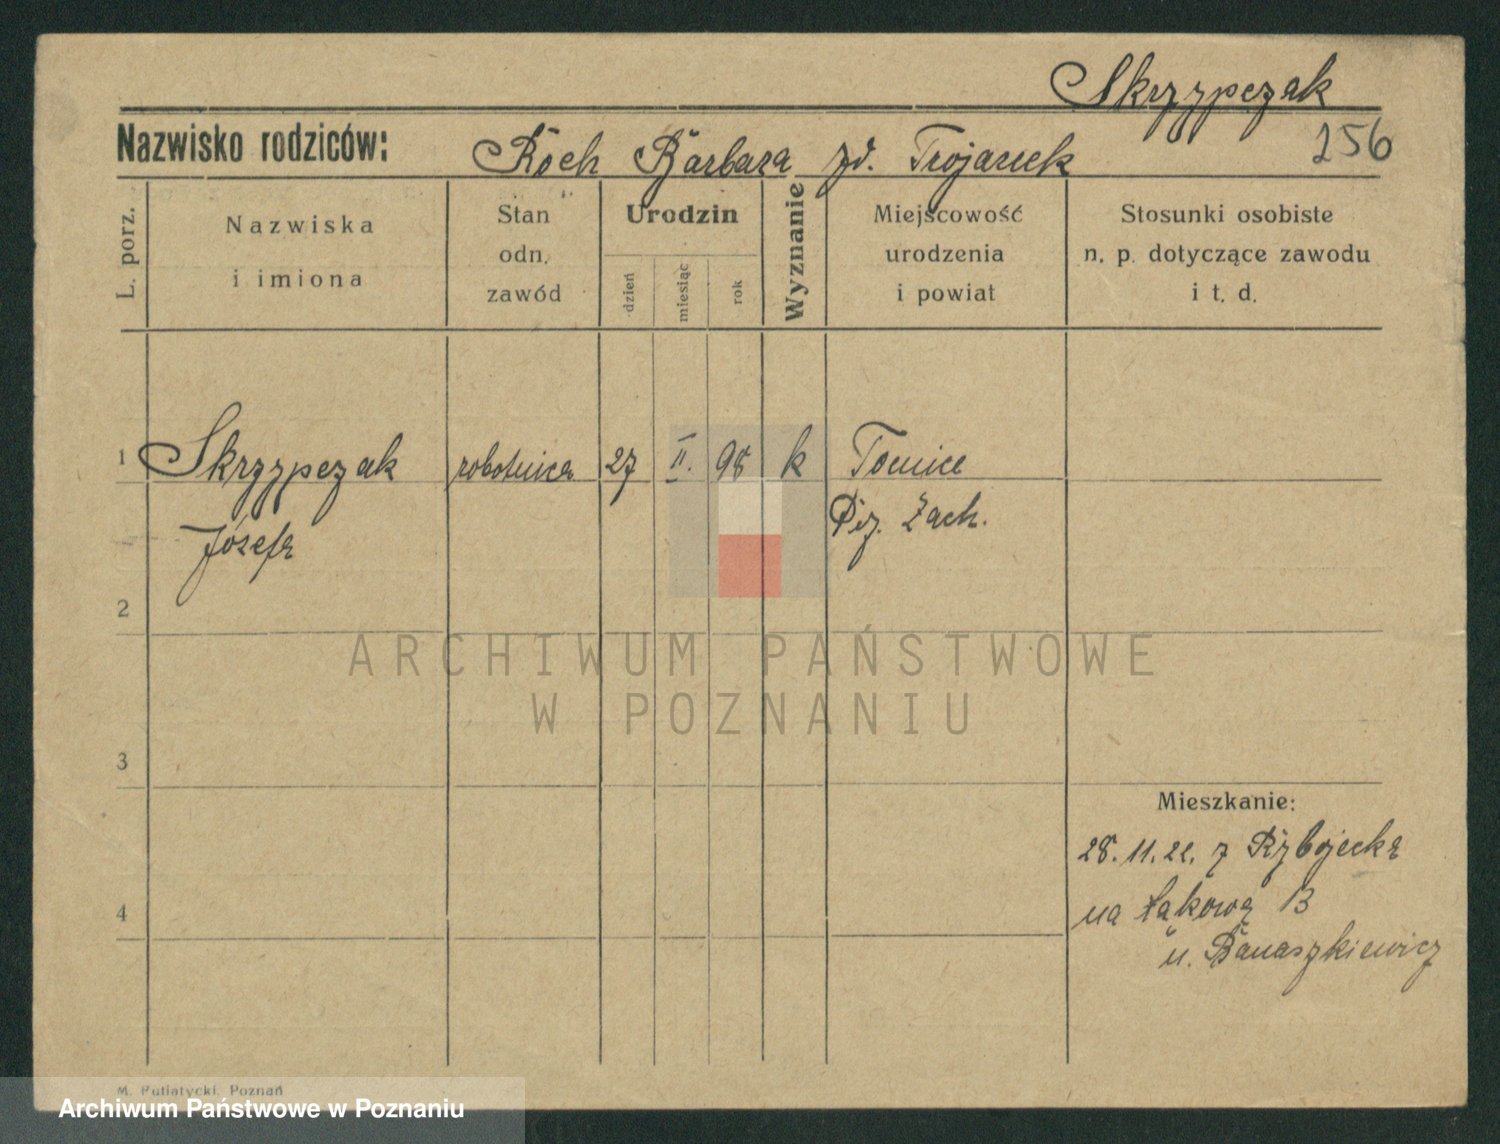 Skrzypczak
Nazwisko rodziców:
Roch Barbara zd. Trojanek
256
L. porz.
Nazwiska
i imiona
Stan
odn.
zawód
Urodzin
dzień
miesiąc
rok
Wyznanie
Miejscowość
urodzenia
i powiat
Stosunki osobiste
n. p. dotyczące zawodu
i t. d.
1 Skrzypczak robotnica 27 II. 98 k Tomice
Józefa
Zach.
2
ARCHIWUM PAŃSTWOWE
W POZNANIU
3
Mieszkanie:
28.11.22. z Rybojecka
4
na Łąkową 13
u. Banaszkiewicz
M. Putiatycki, Poznań
Archiwum Państwowe w Poznaniu